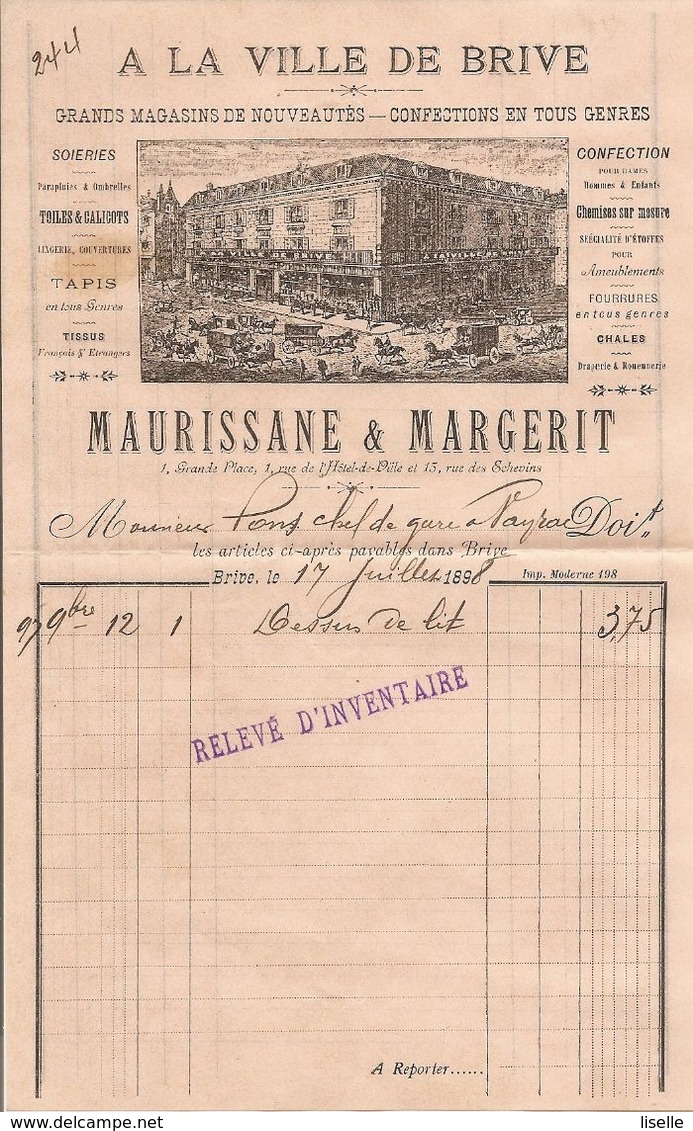 244
A LA VILLE DE BRIVE
GRANDS MAGASINS DE NOUVEAUTÉS — CONFECTIONS EN TOUS GENRES
SOIERIES
Parapluies & Ombrelles
TOILES & CALICOTS
LINGERIE, COUVERTURES
TAPIS
en tous Genres
TISSUS
Français & Etrangers
A LA VILLE DE BRIVE
CONFECTION
POUR DAMES
Hommes & Enfants
Chemises sur mesure
SPÉCIALITÉ D'ÉTOFFES
POUR
Ameublements
FOURRURES
en tous genres
CHALES
Draperie & Rouennerie
MAURISSANE & MARGERIT
1, Grande Place, 1, rue de l'Hôtel-de-Ville et 15, rue des Echevins
Monsieur Pons chef de gare à Payrac Doit
les articles ci-après payables dans Brive
Brive, le 17 Juillet 1898 Imp. Moderne 198
97 9bre 12 1 Dessus de lit 3,75
RELEVÉ D'INVENTAIRE
A Reporter......
liselle